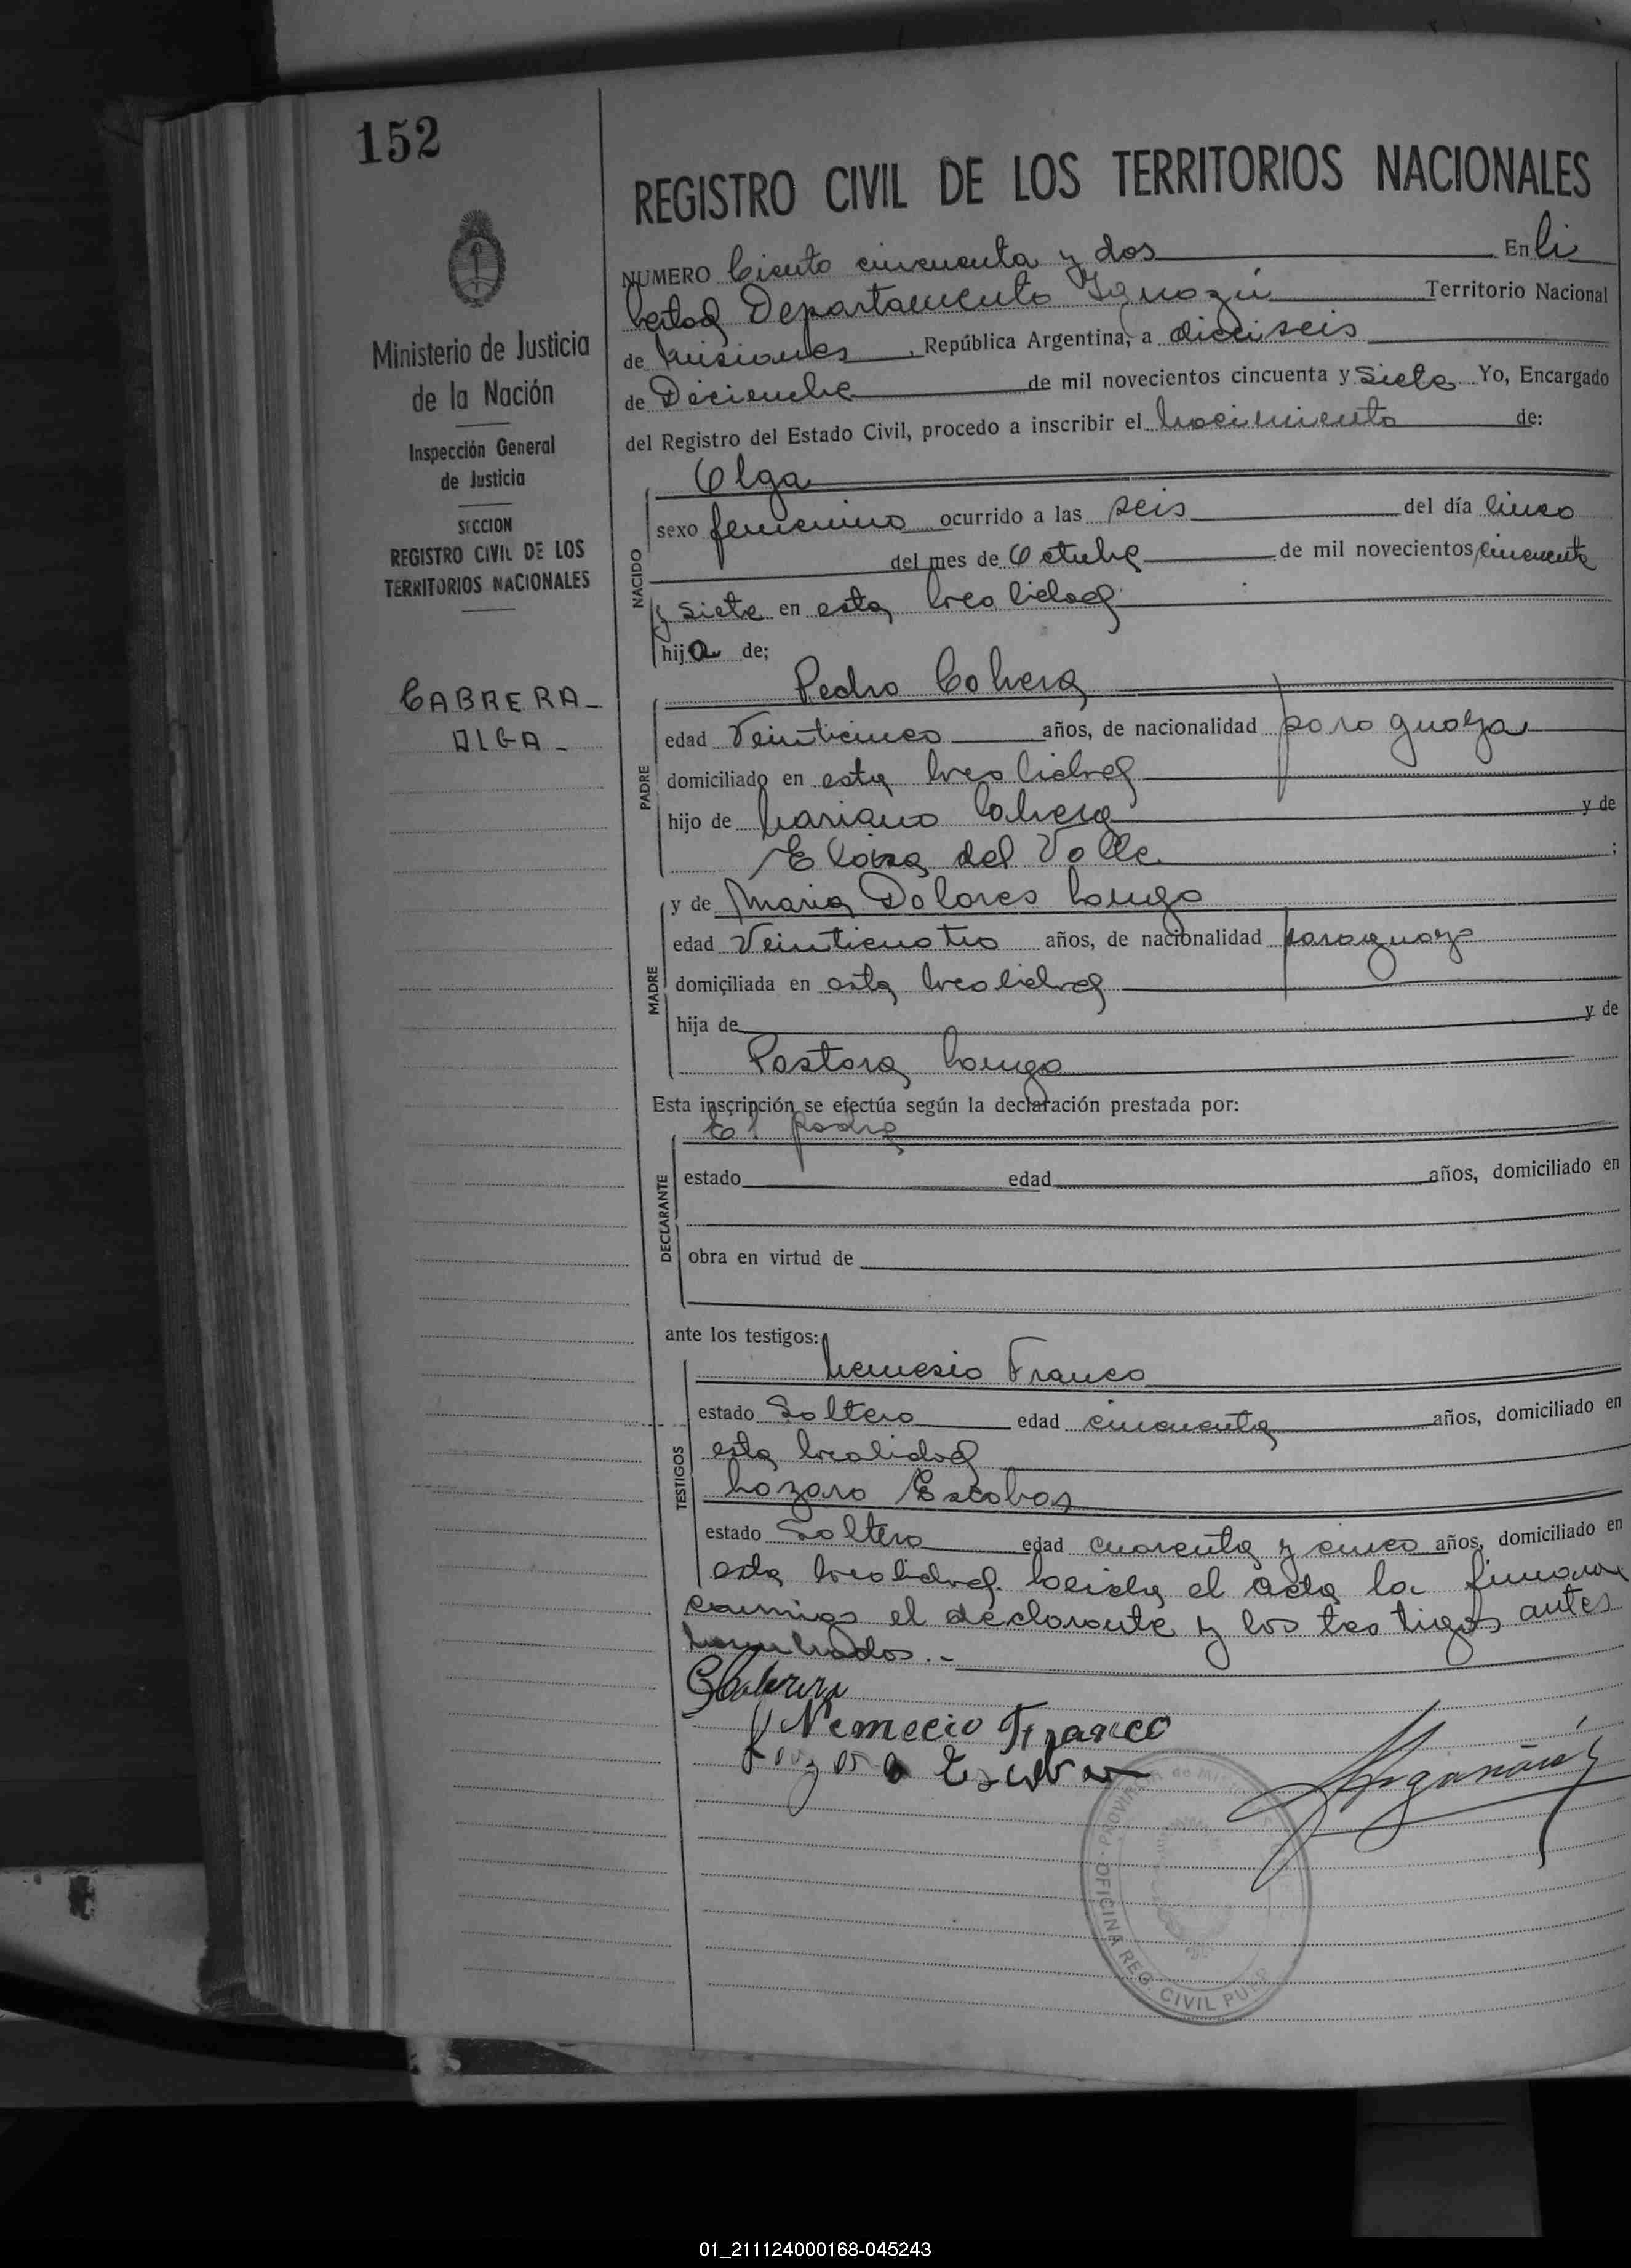 152
REGISTRO CIVIL DE LOS TERRITORIOS NACIONALES
NUMERO Ciento cincuenta y dos En Li
bertad Departamento Iguazú Territorio Nacional
de Misiones, República Argentina, a dieciseis
de Diciembre de mil novecientos cincuenta y Siete Yo, Encargado
del Registro del Estado Civil, procedo a inscribir el Nacimiento de:
Ministerio de Justicia
de la Nación
Inspección General
de Justicia
SECCION
REGISTRO CIVIL DE LOS
TERRITORIOS NACIONALES
CABRERA-
OLGA-
NACIDO
Olga
sexo femenino ocurrido a las seis del día cinco
del mes de Octubre de mil novecientos cincuenta
y siete en esta localidad
hija de;
PADRE
Pedro Cabrera
edad Veinticinco años, de nacionalidad paraguaya
domiciliado en esta localidad
hijo de Mariano Cabrera y de
Eloisa del Valle ;
MADRE
y de Maria Dolores
edad Veinticuatro años, de nacionalidad paraguaya
domiciliada en esta localidad
hija de y de
Pastora
Esta inscripción se efectúa según la declaración prestada por:
DECLARANTE
El padre
estado edad años, domiciliado en
obra en virtud de
ante los testigos:
TESTIGOS
Nemesio Franco
estado Soltero edad cincuenta años, domiciliado en
esta localidad
Lazaro Escobar
estado Soltero edad cuarenta y cinco años, domiciliado en
esta localidad. Leida el acta la firmaron
conmigo el declarante y los testigos antes
nombrados.-
Cabrera
Nemecio Franco
Lazaro Escobar
PROVINCIA de Misiones
OFICINA REG. CIVIL PUB
01_211124000168-045243